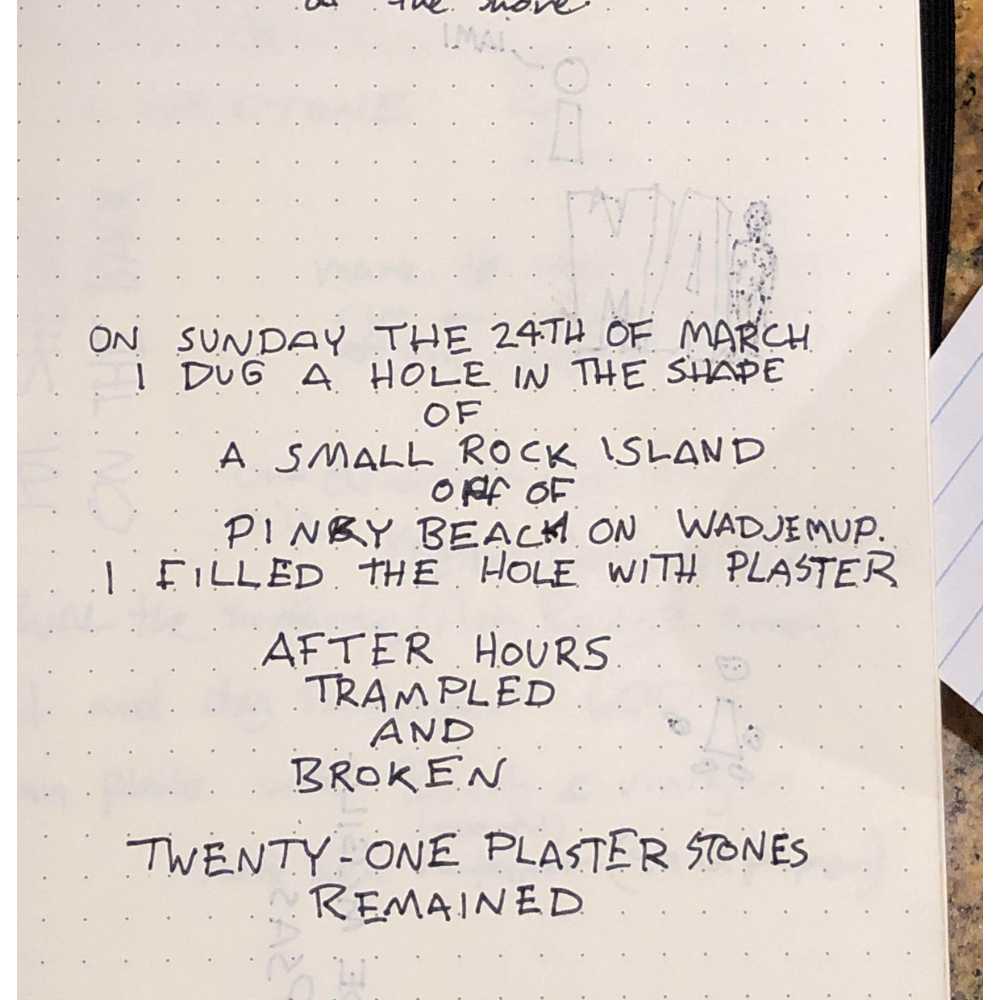 on the shore
ON SUNDAY THE 24TH OF MARCH
I DUG A HOLE IN THE SHAPE
OF
A SMALL ROCK ISLAND
OFF OF
PINKY BEACH ON WADJEMUP.
I FILLED THE HOLE WITH PLASTER
AFTER HOURS
TRAMPLED
AND
BROKEN
TWENTY-ONE PLASTER STONES
REMAINED